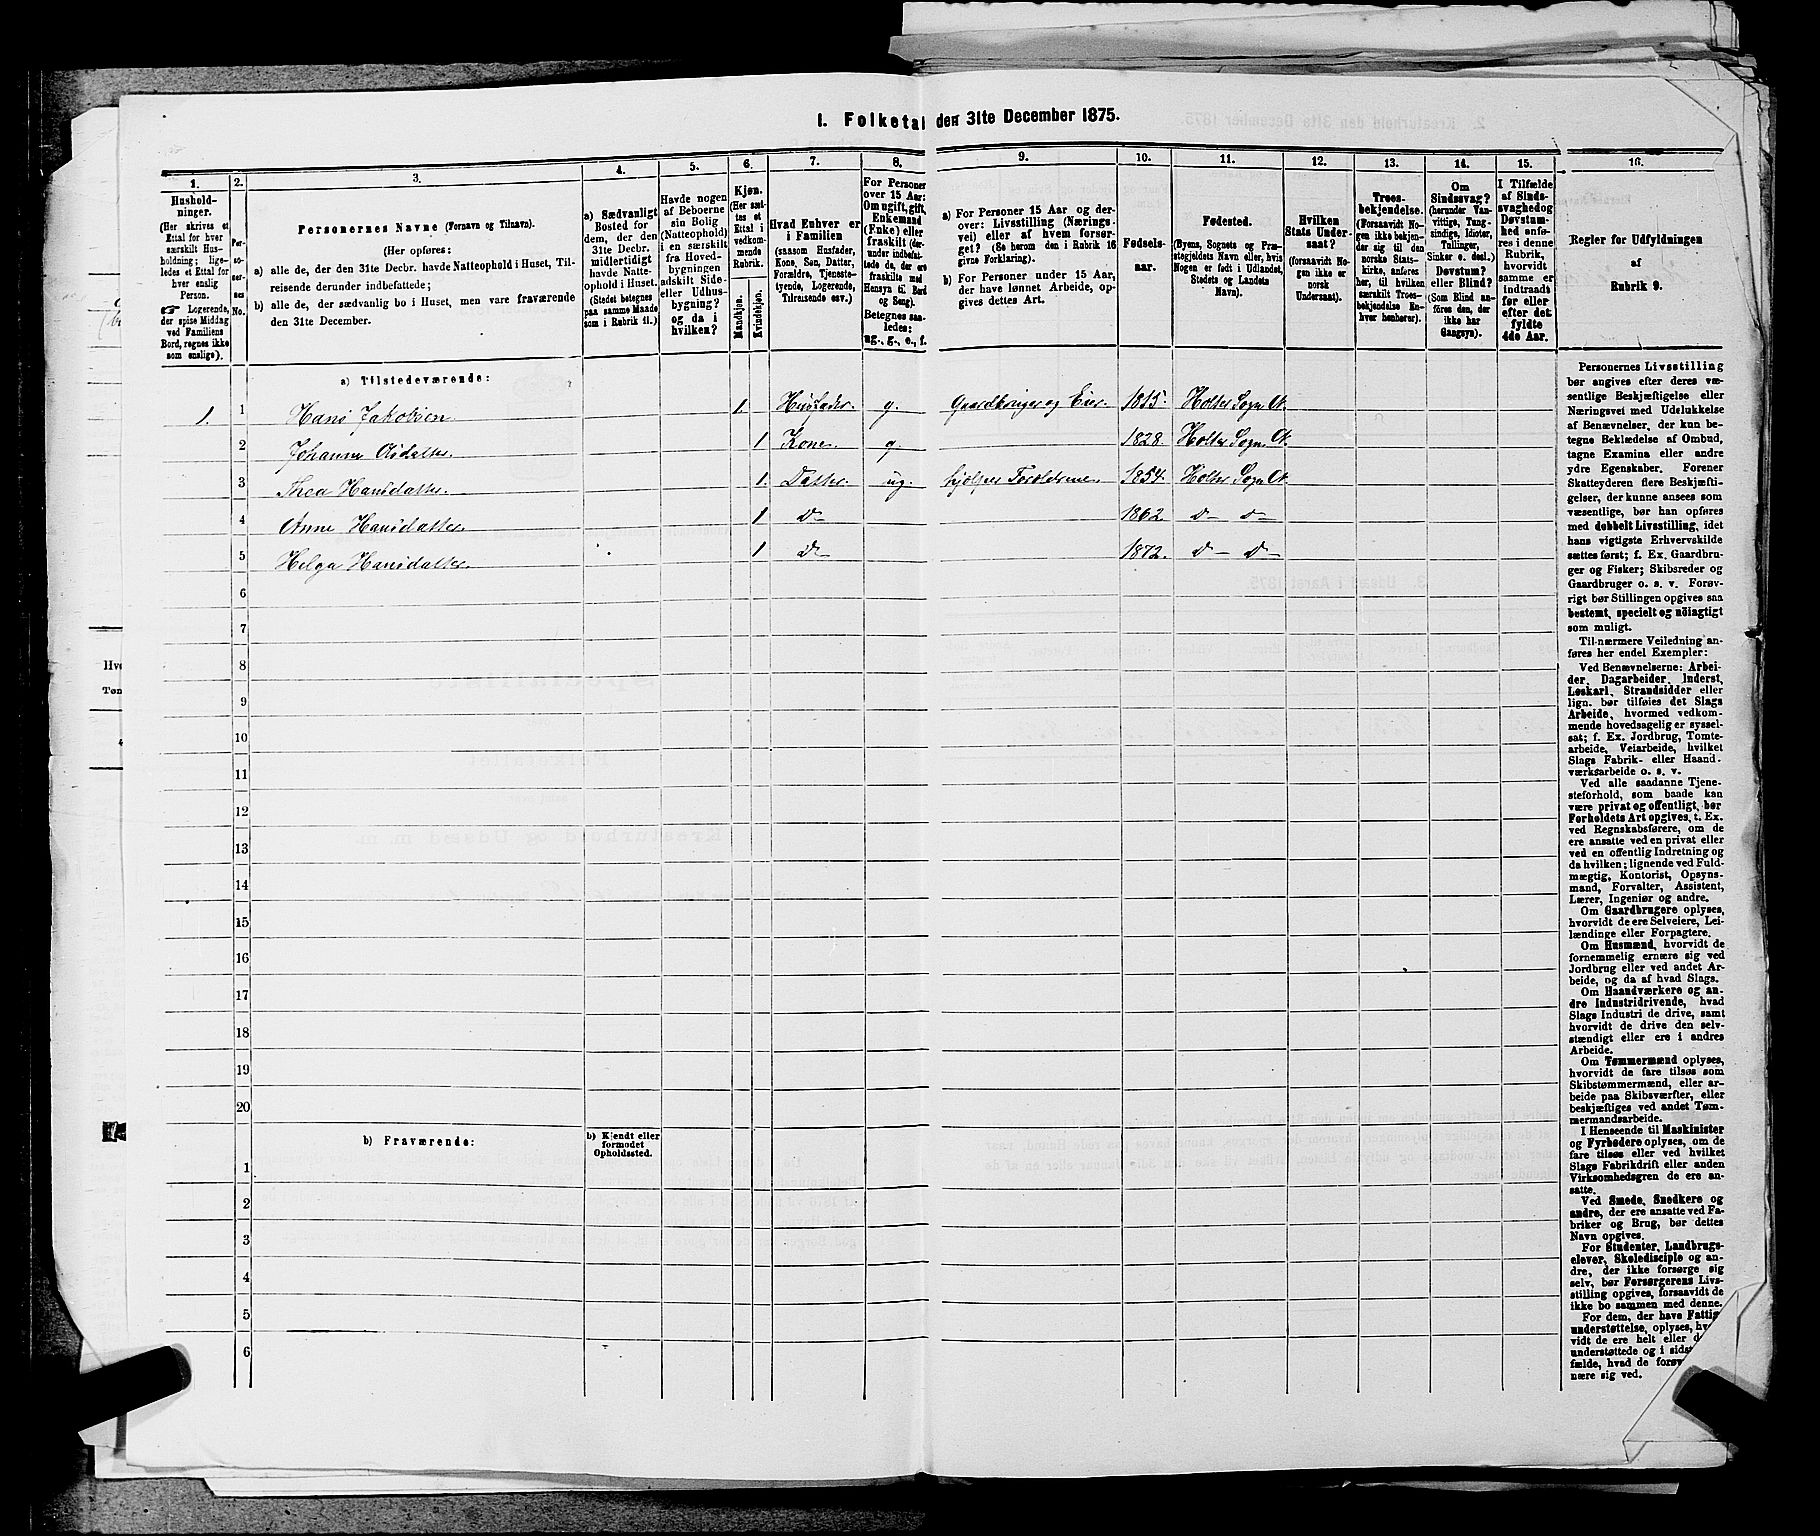 I. Folketal den 31te December 1875.
1. 2. 3. 4. 5. 6. 7. 8. 9. 10. 11. 12. 13. 14. 15. 16.
Husholdninger.
(Her skrives et
Ettal for hver
særskilt Husholdning;
ligeledes et Ettal for
hver enslig
Person.
☛ Logerende,
der spise Middag
ved Familiens
Bord, regnes ikke
som enslige).
Personernes No.
Personernes Navne (Fornavn og Tilnavn).
(Her opføres:
a) alle de, der den 31te Decbr. havde Natteophold i Huset, Tilreisende
derunder indbefattede;
b) alle de, der sædvanlig bo i Huset, men vare fraværende
den 31te December.
a) Sædvanligt
Bosted for
dem, der den
31te Decbr.
midlertidigt
havde Natteophold
i Huset.
(Stedet betegnes
paa samme Maade
som i Rubrik 11.)
Havde nogen
af Beboerne
sin Bolig
(Natteophold)
i en særskilt
fra Hovedbygningen
adskilt Side-
eller Udhusbygning?
og da i
hvilken?
Kjøn.
(Her sættes
et
Ettal i
vedkommende
Rubrik.
Mandkjøn.
Kvindekjøn.
Hvad Enhver er
i Familien
(saasom Husfader,
Kone, Søn, Datter,
Forældre, Tjenestetyende,
Logerende,
Tilreisende osv.)
For Personer
over 15 Aar:
Om ugift, gift,
Enkemand
(Enke) eller
fraskilt (derunder
indbefattede
de, der ere
fraskilte med
Hensyn til Bord
og Seng).
Betegnes saaledes:
ug., g., e., f.
a) For Personer 15 Aar og derover:
Livsstilling (Næringsvei)
eller af hvem forsørget?
(Se herom den i Rubrik 16
givne Forklaring).
b) For Personer under 15 Aar,
der have lønnet Arbeide, opgives
dettes Art.
Fødselsaar.
Fødested.
(Byens, Sognets og Præstegjeldets
Navn eller, hvis
Nogen er født i Udlandet,
Stedets og Landets
Navn).
Hvilken
Stats Undersaat?
(forsaavidt Nogen
ikke er
norsk
Undersaat).
Troesbekjendelse.
(Forsaavidt Nogen
ikke bekjender
sig til den
norske Statskirke,
anføres
her, til hvilken
særskilt Troesbekjendelse
Enhver
henhører).
Om
Sindssvag?
(herunder Vanvittige,
Tungsindige,
Idioter,
Tullinger,
Sinker o. desl.)
Døvstum?
eller Blind?
(Som Blind anføres
den, der
ikke har
Gangsyn).
I Tilfælde
af Sindssvaghed
og
Døvstumhed
anføres
i denne
Rubrik,
hvorvidt
samme er
indtraadt
før eller
efter det
fyldte
4de Aar.
Regler for Udfyldningen
af
Rubrik 9.
a) Tilstedeværende:
1. 1 Hans Jakobsen 1. Husfader. g. Gaardbruger og Eier. 1815. Holter Sogn A.
2 Johanne Olsdatter. 1 Kone. g. 1828. Holter Sogn A.
3 Thea Hansdatter. 1. Datter. ug. hjælper Forældrene 1854. Holter Sogn A.
4 Anne Hansdatter. 1 D— 1862. D— D—
5 Helga Hansdatter. 1 D— 1872. D— D—
6
7
8
9
10
11
12
13
14
15
16
17
18
19
20
b) Fraværende:
b) Kjendt eller
formodet
Opholdssted.
1
2
3
4
5
6
Personernes Livsstilling
bør angives efter deres væsentlige
Beskjæftigelse eller
Næringsvei med Udelukkelse
af Benævnelser, der kun betegne
Beklædelse af Ombud,
tagne Examina eller andre
ydre Egenskaber. Forener
Skatteyderen flere Beskjæftigelser,
der kunne ansees som
væsentlige, bør han opføres
med dobbelt Livsstilling, idet
hans vigtigste Erhvervskilde
sættes først; f. Ex. Gaardbruger
og Fisker; Skibsreder og
Gaardbruger o. s. v. Forøvrigt
bør Stillingen opgives saa
bestemt, specielt og nöiagtigt
som muligt.
Til nærmere Veiledning anføres
her endel Exempler:
Ved Benævnelserne: Arbeider,
Dagarbeider, Inderst,
Løskarl, Strandsidder eller
lign. bør tilføies det Slags
Arbeide, hvormed vedkommende
hovedsagelig er sysselsat;
f. Ex. Jordbrug, Tomtearbeide,
Veiarbeide, hvilket
Slags Fabrik- eller Haandværksarbeide
o. s. v.
Ved alle saadanne Tjenesteforhold,
som baade kan
være privat og offentligt, bør
Forholdets Art opgives, t. Ex.
ved Regnskabsførere, om de
ere ansatte ved en privat eller
ved en offentlig Indretning og
da hvilken; lignende ved Fuldmægtig,
Kontorist, Opsynsmand,
Forvalter, Assistent,
Lærer, Ingeniør og andre.
Om Gaardbrugere oplyses,
hvorvidt de ere Selveiere, Leilændinge
eller Forpagtere.
Om Husmænd, hvorvidt de
fornemmelig ernære sig ved
Jordbrug eller ved andet Arbeide,
og da af hvad Slags.
Om Haandværkere og andre
Industridrivende, hvad
Slags Industri de drive, samt
hvorvidt de drive den selvstændigt
eller ere i andres
Arbeide.
Om Tømmermænd oplyses,
hvorvidt de fare tilsøs som
Skibstømmermænd, eller arbeide
paa Skibsværfter, eller
beskjæftiges ved andet Tømmermandsarbeide.
I Henseende til Maskinister
og Fyrbødere oplyses, om de
fare tilsøs eller ved hvilket
Slags Fabrikdrift eller anden
Virksomhedsgren de ere ansatte.
Ved Smede, Snedkere og
andre, der ere ansatte ved Fabriker
og Brug, bør dettes
Navn opgives.
For Studenter, Landbrugselever,
Skoledisciple og andre,
der ikke forsørge sig
selv, bør Forsørgerens Livsstilling
opgives, forsaavidt de
ikke bo sammen med denne.
For dem, der have Fattigunderstøttelse,
oplyses,
vidt de ere helt eller
understøttede og i
fælde, hvad de
nære sig ved.